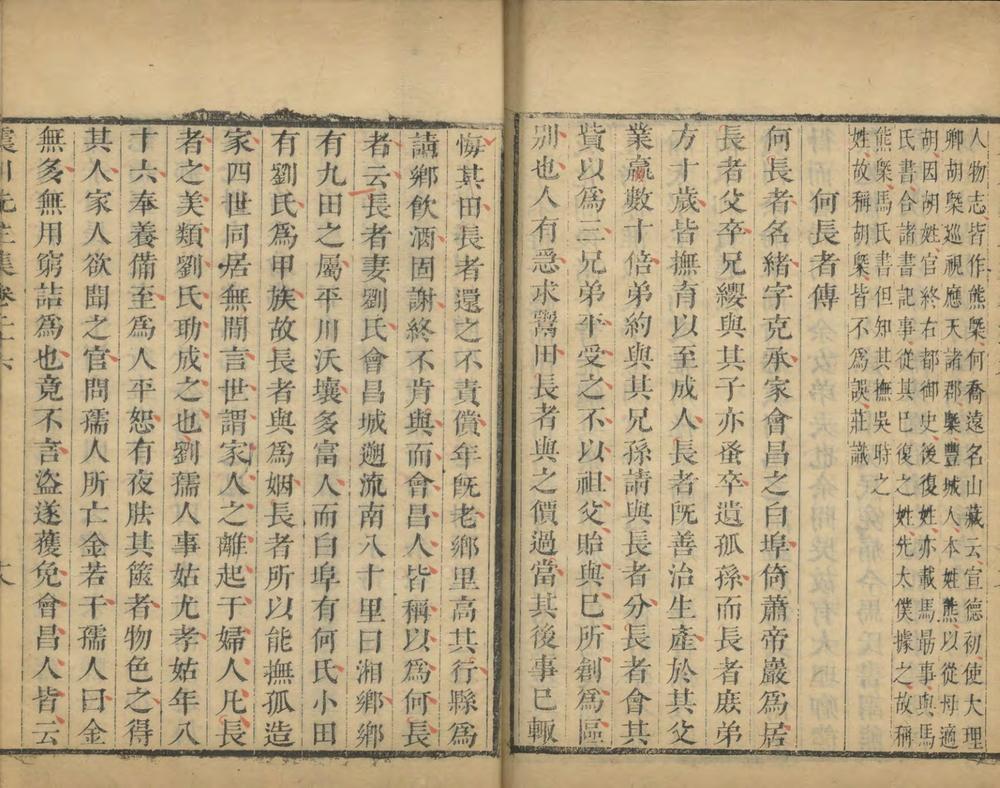 人物志皆作熊槩何喬遠名山藏云宣德初使大理
卿胡槩巡視應天諸郡槩豐城人本姓熊以從母適
胡因胡姓官終右都御史後復姓亦載馬最事與馬
氏書合諸書記事從其已復之姓先太僕據之故稱
熊槩馬氏書但知其撫吳時之
姓故稱胡槩皆不爲誤莊識
何長者傳
何長者名緒字克承家會昌之白埠倚蕭帝巖爲居
長者父卒兄纓與其子亦蚤卒遺孤孫而長者庶弟
方十歲皆撫育以至成人長者旣善治生產於其父
業贏數十倍弟約與其兄孫請與長者分長者會其
貲以爲三兄弟平受之不以祖父貽與已所創爲區
別也人有惡求鬻田長者與之價過當其後事已輙
悔其田長者還之不責償年旣老鄉里高其行縣爲
請鄉飲酒固謝終不肯與而會昌人皆稱以爲何長
者云長者妻劉氏會昌城遡流南八十里曰湘鄉鄉
有九田之屬平川沃壤多富人而白埠有何氏小田
有劉氏爲甲族故長者與爲姻長者所以能撫孤造
家四世同居無閒言世謂家人之離起于婦人凡長
者之美類劉氏助成之也劉孺人事姑尤孝姑年八
十六奉養備至爲人平恕有夜胠其篋者物色之得
其人家人欲聞之官問孺人所亡金若干孺人曰金
無多無用窮詰爲也竟不言盜遂獲免會昌人皆云
震川先生集卷二十六 八